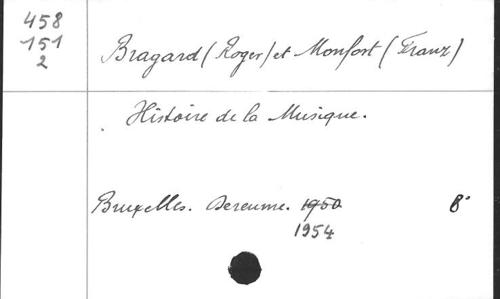 458
151
2
Bragard (Roger) et Monfort (Franz)
Histoire de la Musique.
Bruxelles. Dereume. 1950 8°
1954